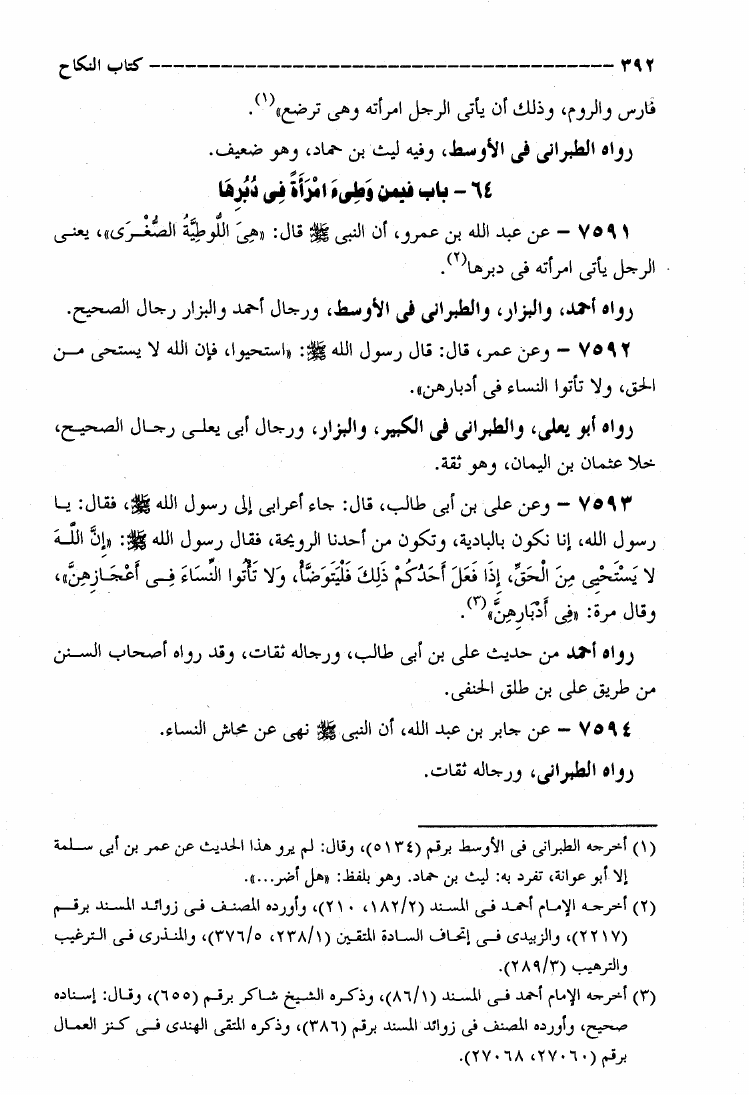 ٣٩٢ ------------------------------------- كتاب النكاح
فارس والروم، وذلك أن يأتى الرجل امرأته وهى ترضع»(١).
رواه الطبرانى فى الأوسط، وفيه ليث بن حماد، وهو ضعيف.
٦٤ – باب فيمن وَطِىءَ امْرَأَةً فِى دُبُرِهَا
٧٥٩١ – عن عبد الله بن عمرو، أن النبى ﷺ قال: «هِىَ اللُّوطِيَّةُ الصُّغْرَى»، يعنى
الرجل يأتى امرأته فى دبرها(٢).
رواه أحمد، والبزار، والطبرانى فى الأوسط، ورجال أحمد والبزار رجال الصحيح.
٧٥٩٢ – وعن عمر، قال: قال رسول الله ﷺ: «استحيوا، فإن الله لا يستحى من
الحق، ولا تأتوا النساء فى أدبارهن».
رواه أبو يعلى، والطبرانى فى الكبير، والبزار، ورجال أبى يعلى رجال الصحيح،
خلا عثمان بن اليمان، وهو ثقة.
٧٥٩٣ – وعن على بن أبى طالب، قال: جاء أعرابى إلى رسول الله ﷺ، فقال: يا
رسول الله، إنا نكون بالبادية، وتكون من أحدنا الرويحة، فقال رسول الله ﷺ: «إِنَّ اللَّهَ
لا يَسْتَحْيِى مِنَ الْحَقِّ، إِذَا فَعَلَ أَحَدُكُمْ ذَلِكَ فَلْيَتَوَضَّأْ، وَلا تَأْتُوا النِّسَاءَ فِى أَعْجَازِهِنَّ»،
وقال مرة: «فِى أَدْبَارِهِنَّ»(٣).
رواه أحمد من حديث على بن أبى طالب، ورجاله ثقات، وقد رواه أصحاب السنن
من طريق على بن طلق الحنفى.
٧٥٩٤ – عن جابر بن عبد الله، أن النبى ﷺ نهى عن محاش النساء.
رواه الطبرانى، ورجاله ثقات.
(١) أخرجه الطبرانى فى الأوسط برقم (٥١٣٤)، وقال: لم يرو هذا الحديث عن عمر بن أبى سلمة
إلا أبو عوانة، تفرد به: ليث بن حماد. وهو بلفظ: «هل أضر...».
(٢) أخرجه الإمام أحمد فى المسند (١٨٢/٢، ٢١٠)، وأورده المصنف فى زوائد المسند برقم
(٢٢١٧)، والزبيدى فى إتحاف السادة المتقين (٢٣٨/١، ٣٧٦/٥)، والمنذرى فى الترغيب
والترهيب (٢٨٩/٣).
(٣) أخرجه الإمام أحمد فى المسند (٨٦/١)، وذكره الشيخ شاكر برقم (٦٥٥)، وقال: إسناده
صحيح، وأورده المصنف فى زوائد المسند برقم (٣٨٦)، وذكره المتقى الهندى فى كنز العمال
برقم (٢٧٠٦٠، ٢٧٠٦٨).